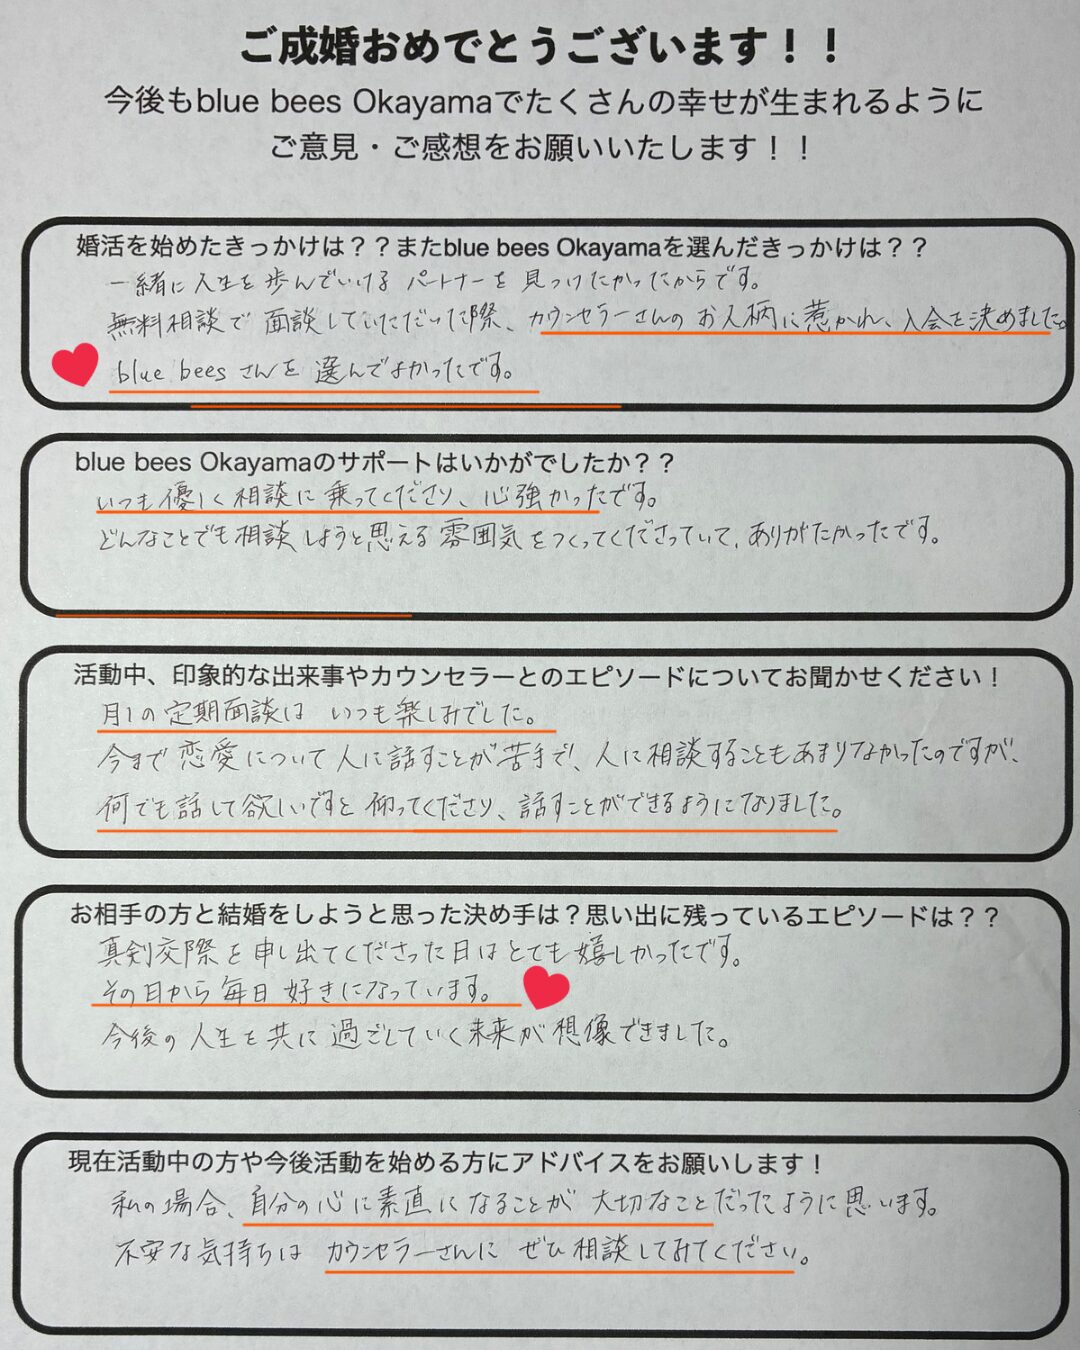 ご成婚おめでとうございます！！
今後もblue bees Okayamaでたくさんの幸せが生まれるように
ご意見・ご感想をお願いいたします！！
婚活を始めたきっかけは？？またblue bees Okayamaを選んだきっかけは？？
一緒に人生を歩んでいけるパートナーを見つけたかったからです。
無料相談で面談していただいた際、カウンセラーさんのお人柄に惹かれ、入会を決めました。
blue beesさんを選んでよかったです。
blue bees Okayamaのサポートはいかがでしたか？？
いつも優しく相談に乗ってくださり、心強かったです。
どんなことでも相談しようと思える雰囲気をつくってくださっていて、ありがたかったです。
活動中、印象的な出来事やカウンセラーとのエピソードについてお聞かせください！
月1の定期面談はいつも楽しみでした。
今まで恋愛について人に話すことが苦手で、人に相談することもあまりなかったのですが、
何でも話して欲しいですと仰ってくださり、話すことができるようになりました。
お相手の方と結婚をしようと思った決め手は？思い出に残っているエピソードは？？
真剣交際を申し出てくださった日はとても嬉しかったです。
その日から毎日好きになっています。
今後の人生を共に過ごしていく未来が想像できました。
現在活動中の方や今後活動を始める方にアドバイスをお願いします！
私の場合、自分の心に素直になることが大切なことだったように思います。
不安な気持ちはカウンセラーさんにぜひ相談してみてください。